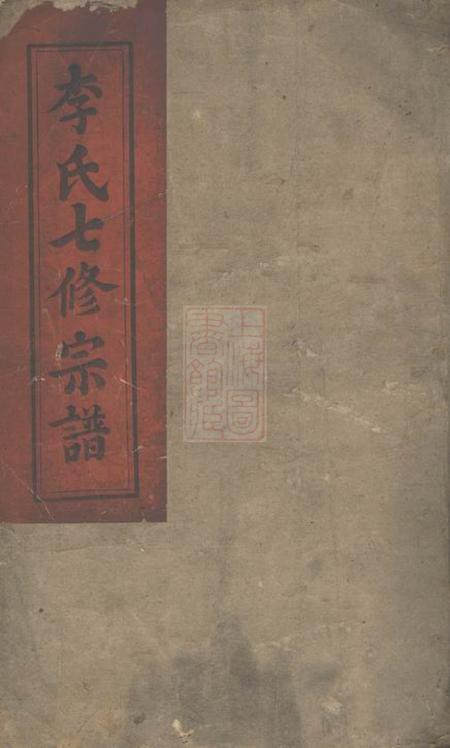 李氏七修宗譜
上海圖
書館臧